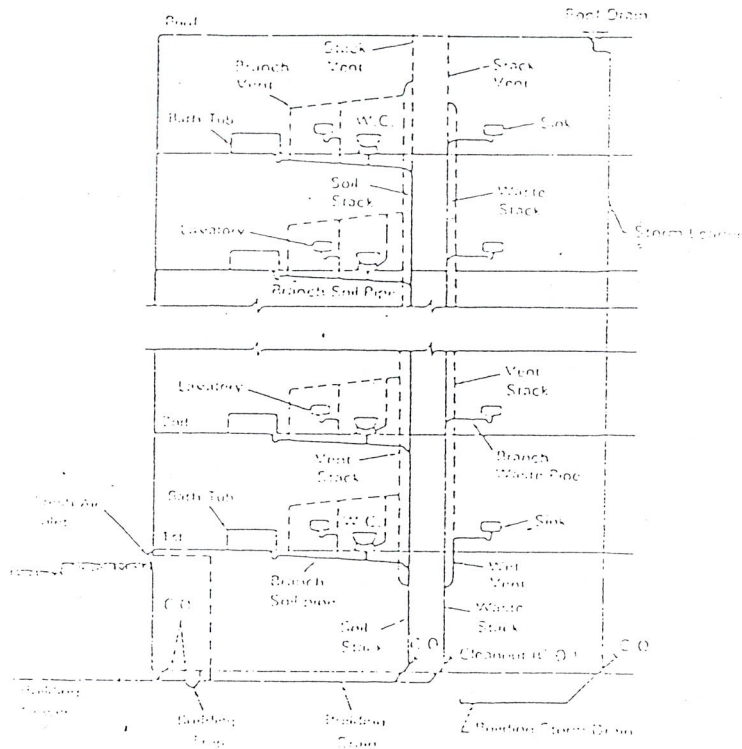 Roof
Roof Drain
Stack
Vent
Branch
Vent
Stack
Vent
Bath Tub
W.C.
Sink
Soil
Stack
Waste
Stack
Lavatory
Storm Leader
Branch Soil Pipe
Lavatory
Vent
Stack
2nd
Vent
Stack
Branch
Waste Pipe
Fresh Air
Inlet
Bath Tub
W.C.
Sink
1st
Branch
Soil pipe
Wet
Vent
C.O.
Soil
Stack
Waste
Stack
C.O.
Cleanout (C.O.)
C.O.
Building
Building
Trap
Building
Building Storm Drain